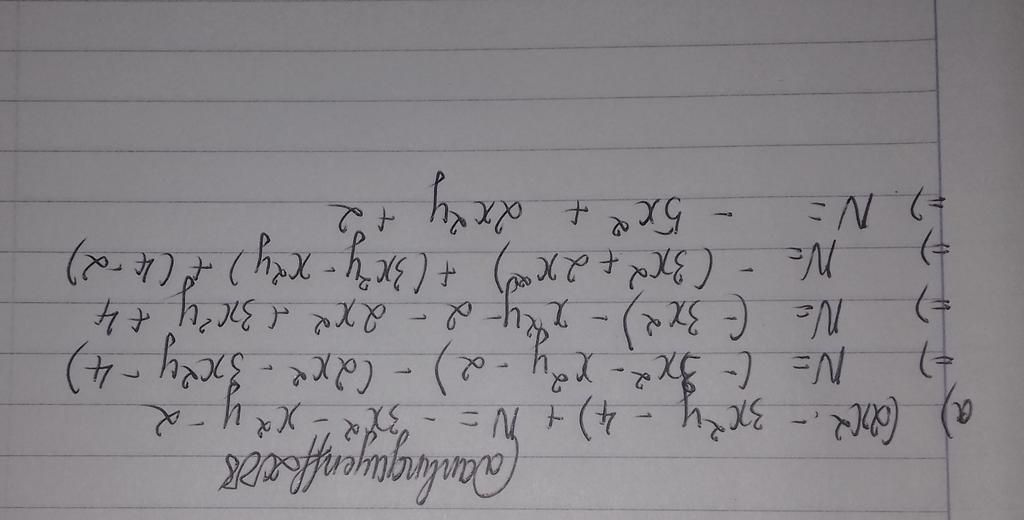 a) (2x² - 3x²y - 4) + N = - 3x² - x²y - 2
=) N = (- 3x² - x²y - 2) - (2x² - 3x²y - 4)
=) N = (- 3x²) - x²y - 2 - 2x² + 3x²y + 4
=) N = - (3x² + 2x²) + (3x²y - x²y) + (4 - 2)
=) N = - 5x² + 2x²y + 2